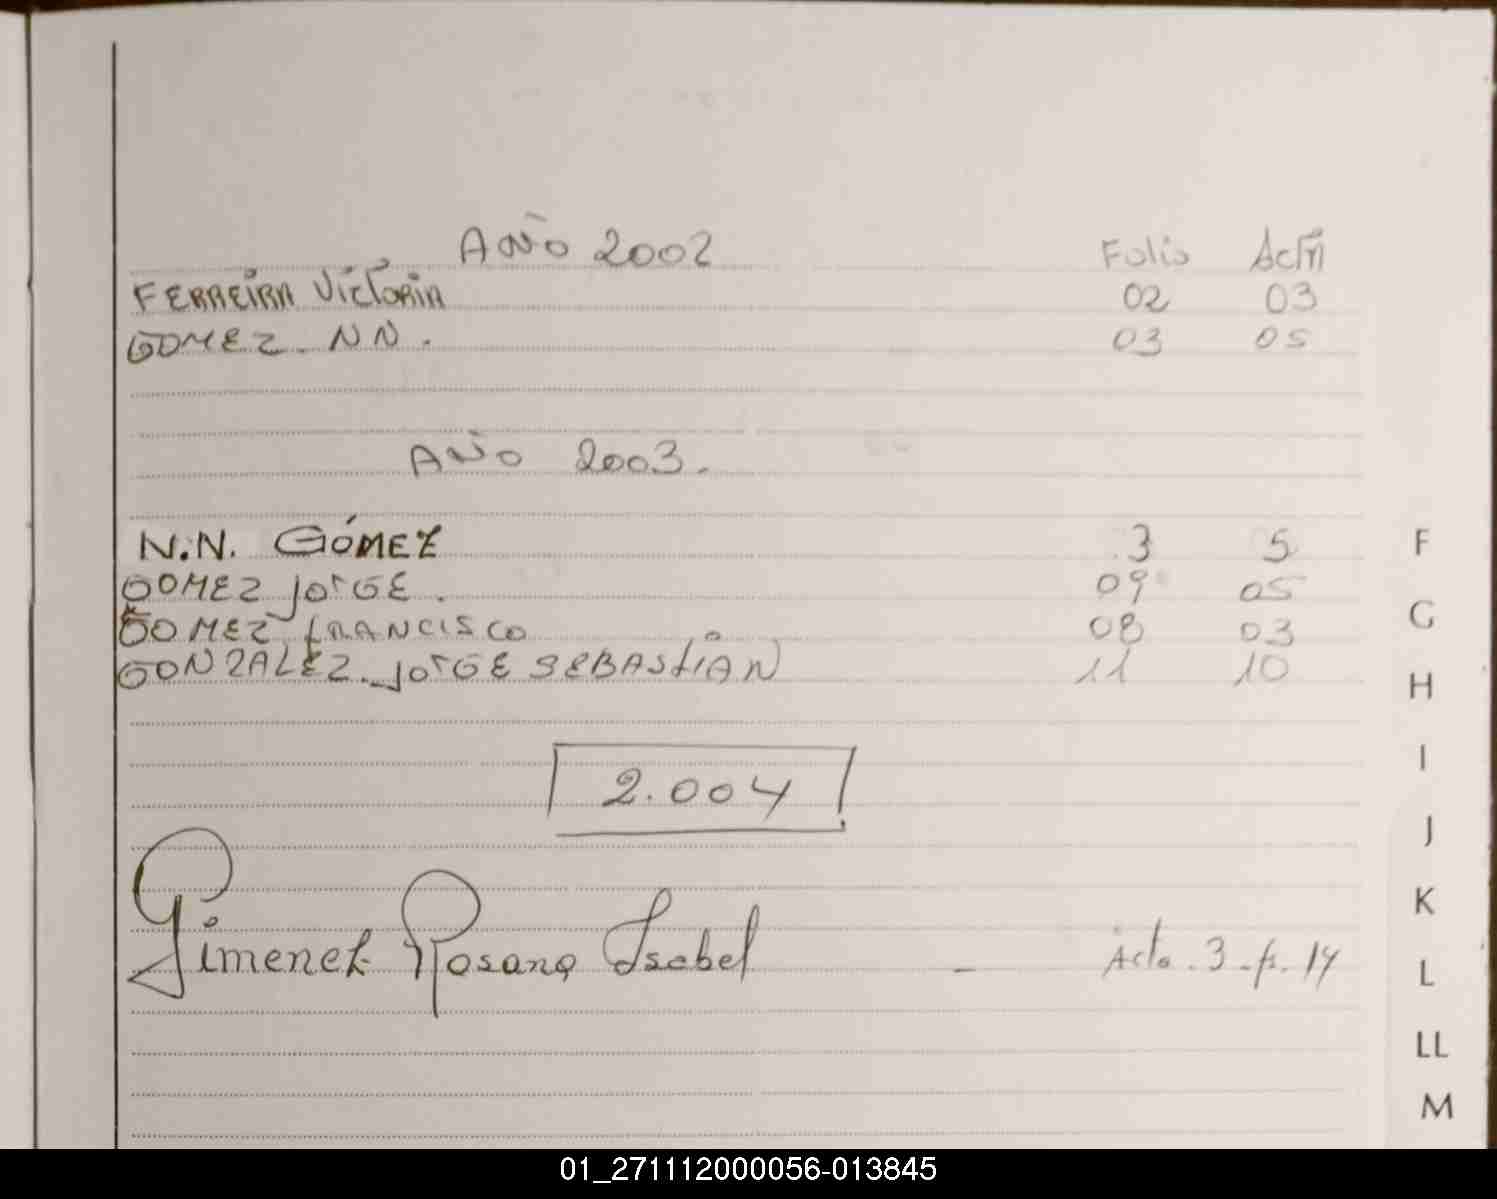 AÑO 2002 Folio Acta
FERREIRA VICTORIA 02 03
GOMEZ. NN. 03 05
AÑO 2003.
N.N. GÓMEZ 3 5
GOMEZ JORGE. 09 05
GOMEZ, FRANCISCO 08 03
GONZALEZ. JORGE SEBASTIAN 11 10
2.004
Gimenez Rosana Isabel - Acta. 3 - f. 14
F
G
H
I
J
K
L
LL
M
01_271112000056-013845